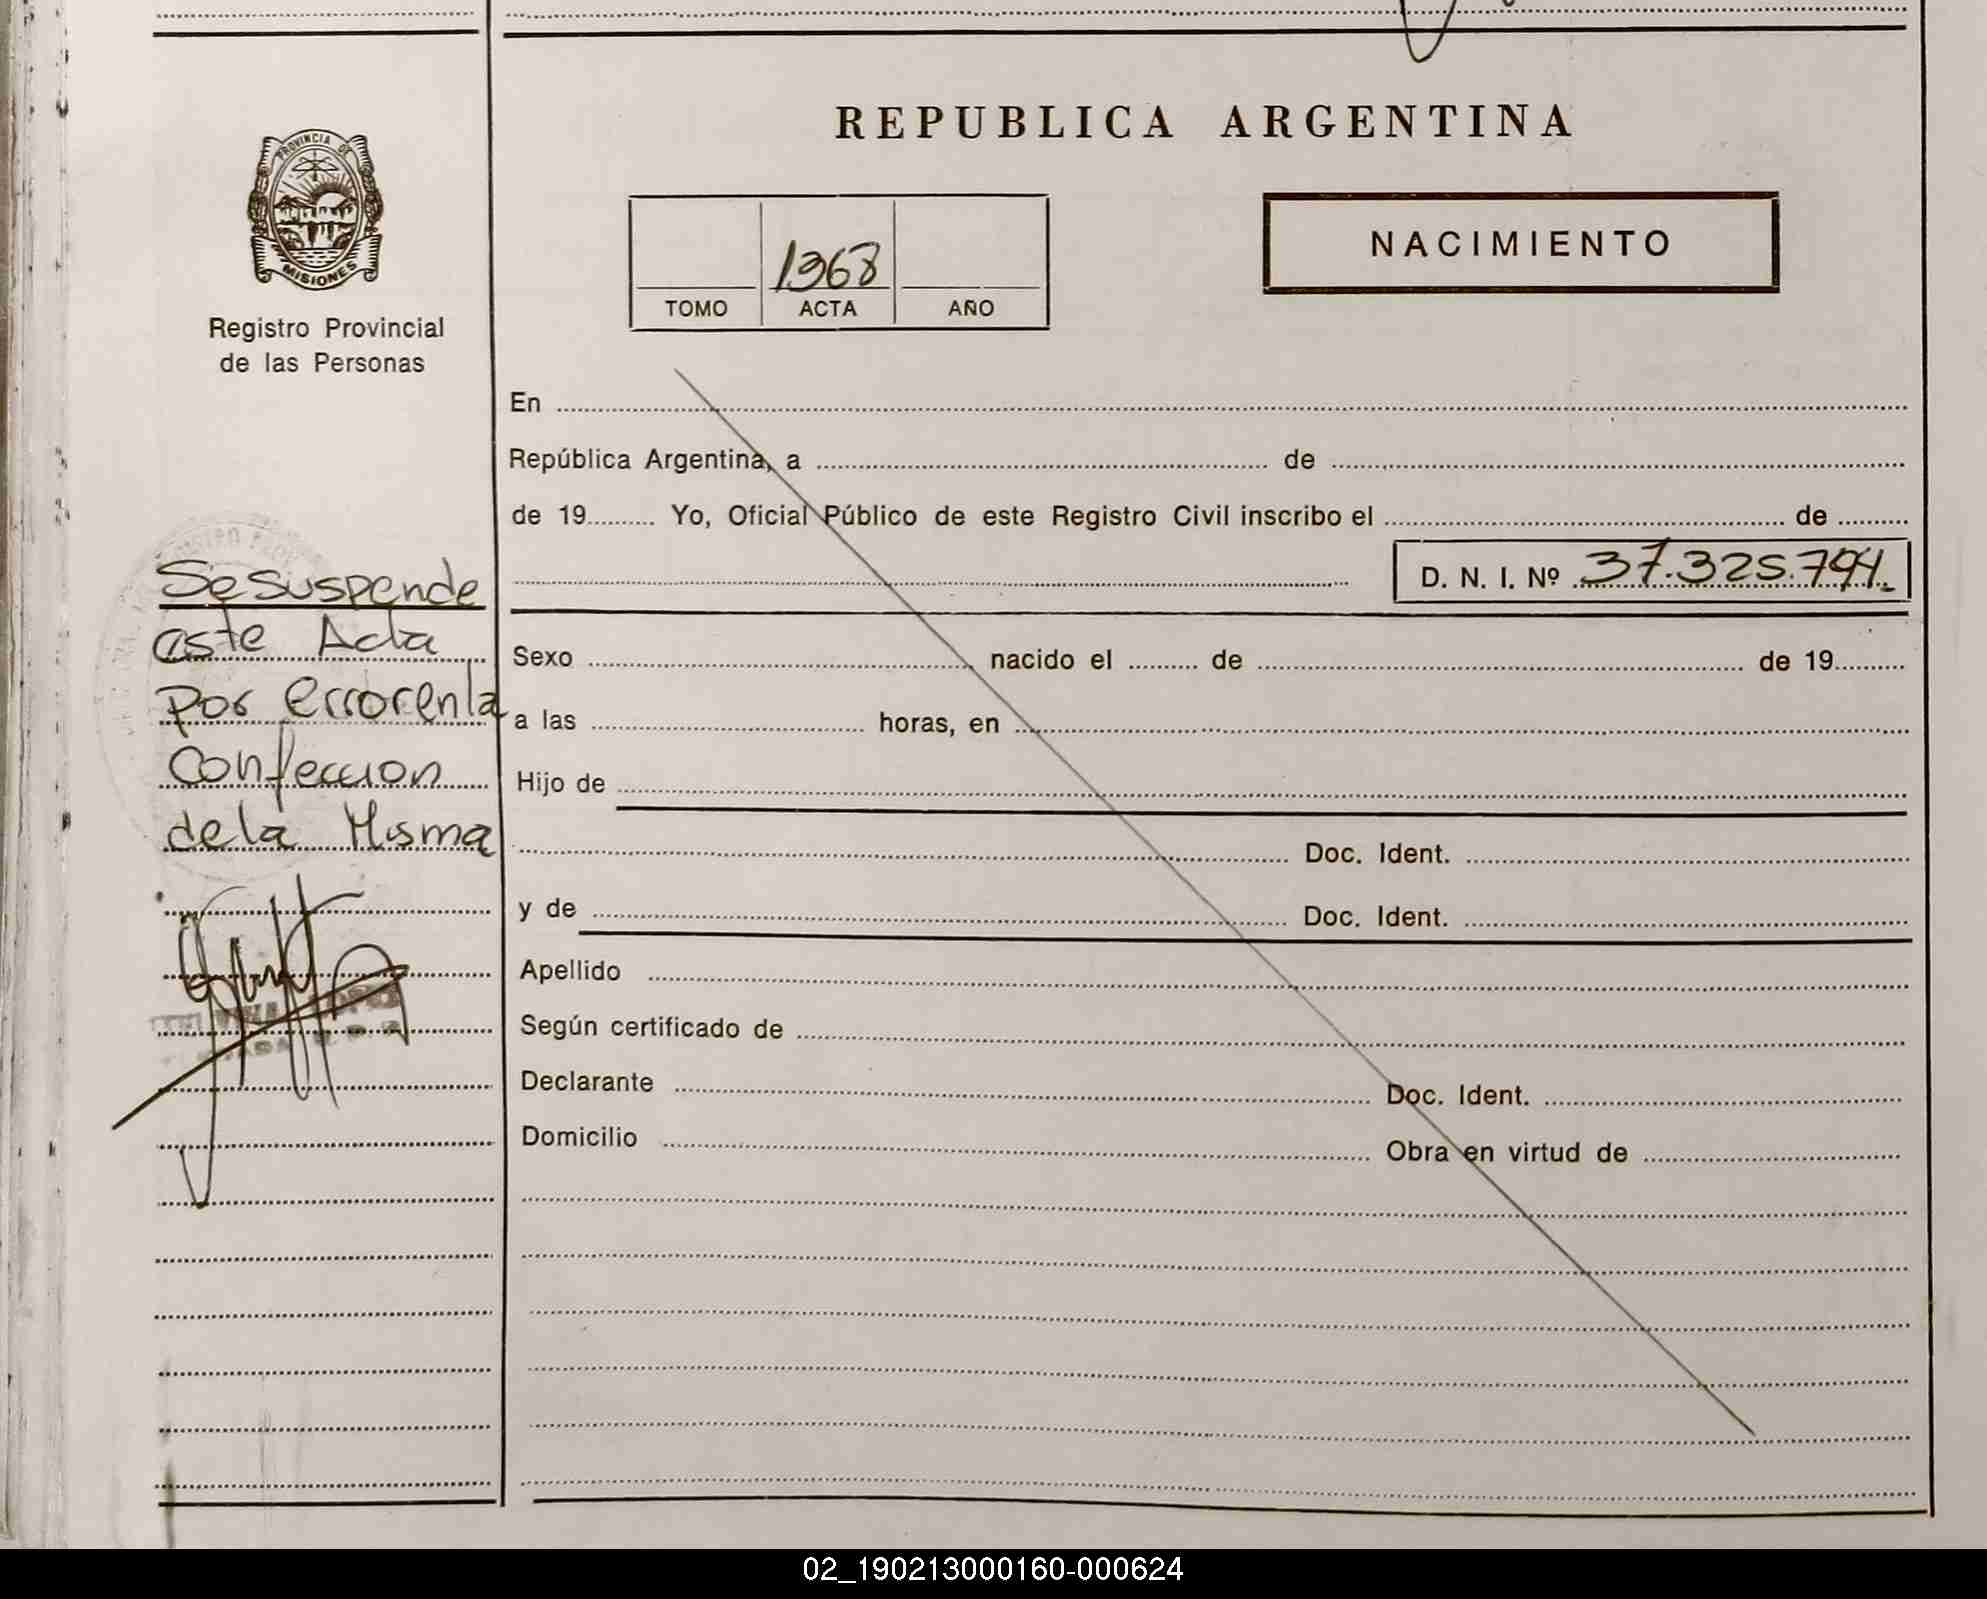 REPUBLICA ARGENTINA
PROVINCIA DE
MISIONES
Registro Provincial
de las Personas
1368
TOMO ACTA AÑO
NACIMIENTO
En
República Argentina, a de
de 19 Yo, Oficial Público de este Registro Civil inscribo el de
D. N. I. Nº 37.325.794.
Se suspende
este Acta
por error en la
Confeccion
de la Misma
Sexo nacido el de de 19
a las horas, en
Hijo de
Doc. Ident.
y de Doc. Ident.
Apellido
Según certificado de
Declarante Doc. Ident.
Domicilio Obra en virtud de
02_190213000160-000624